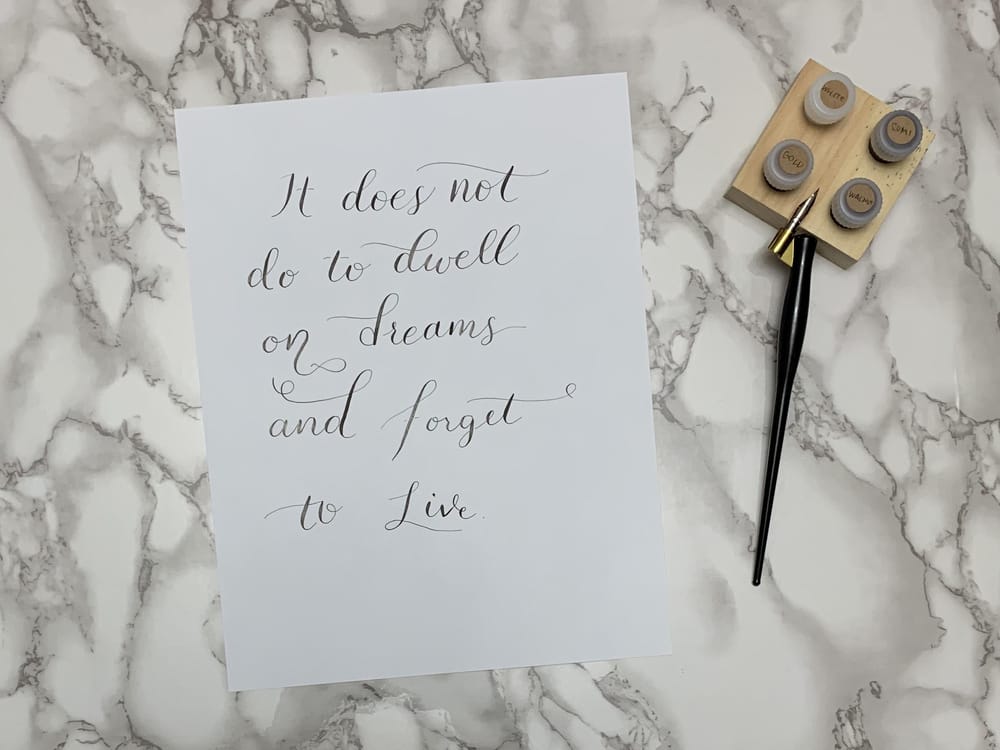 It does not
do to dwell
on dreams
and forget
to Live.
WHITE
SUMI
GOLD
WALNUT